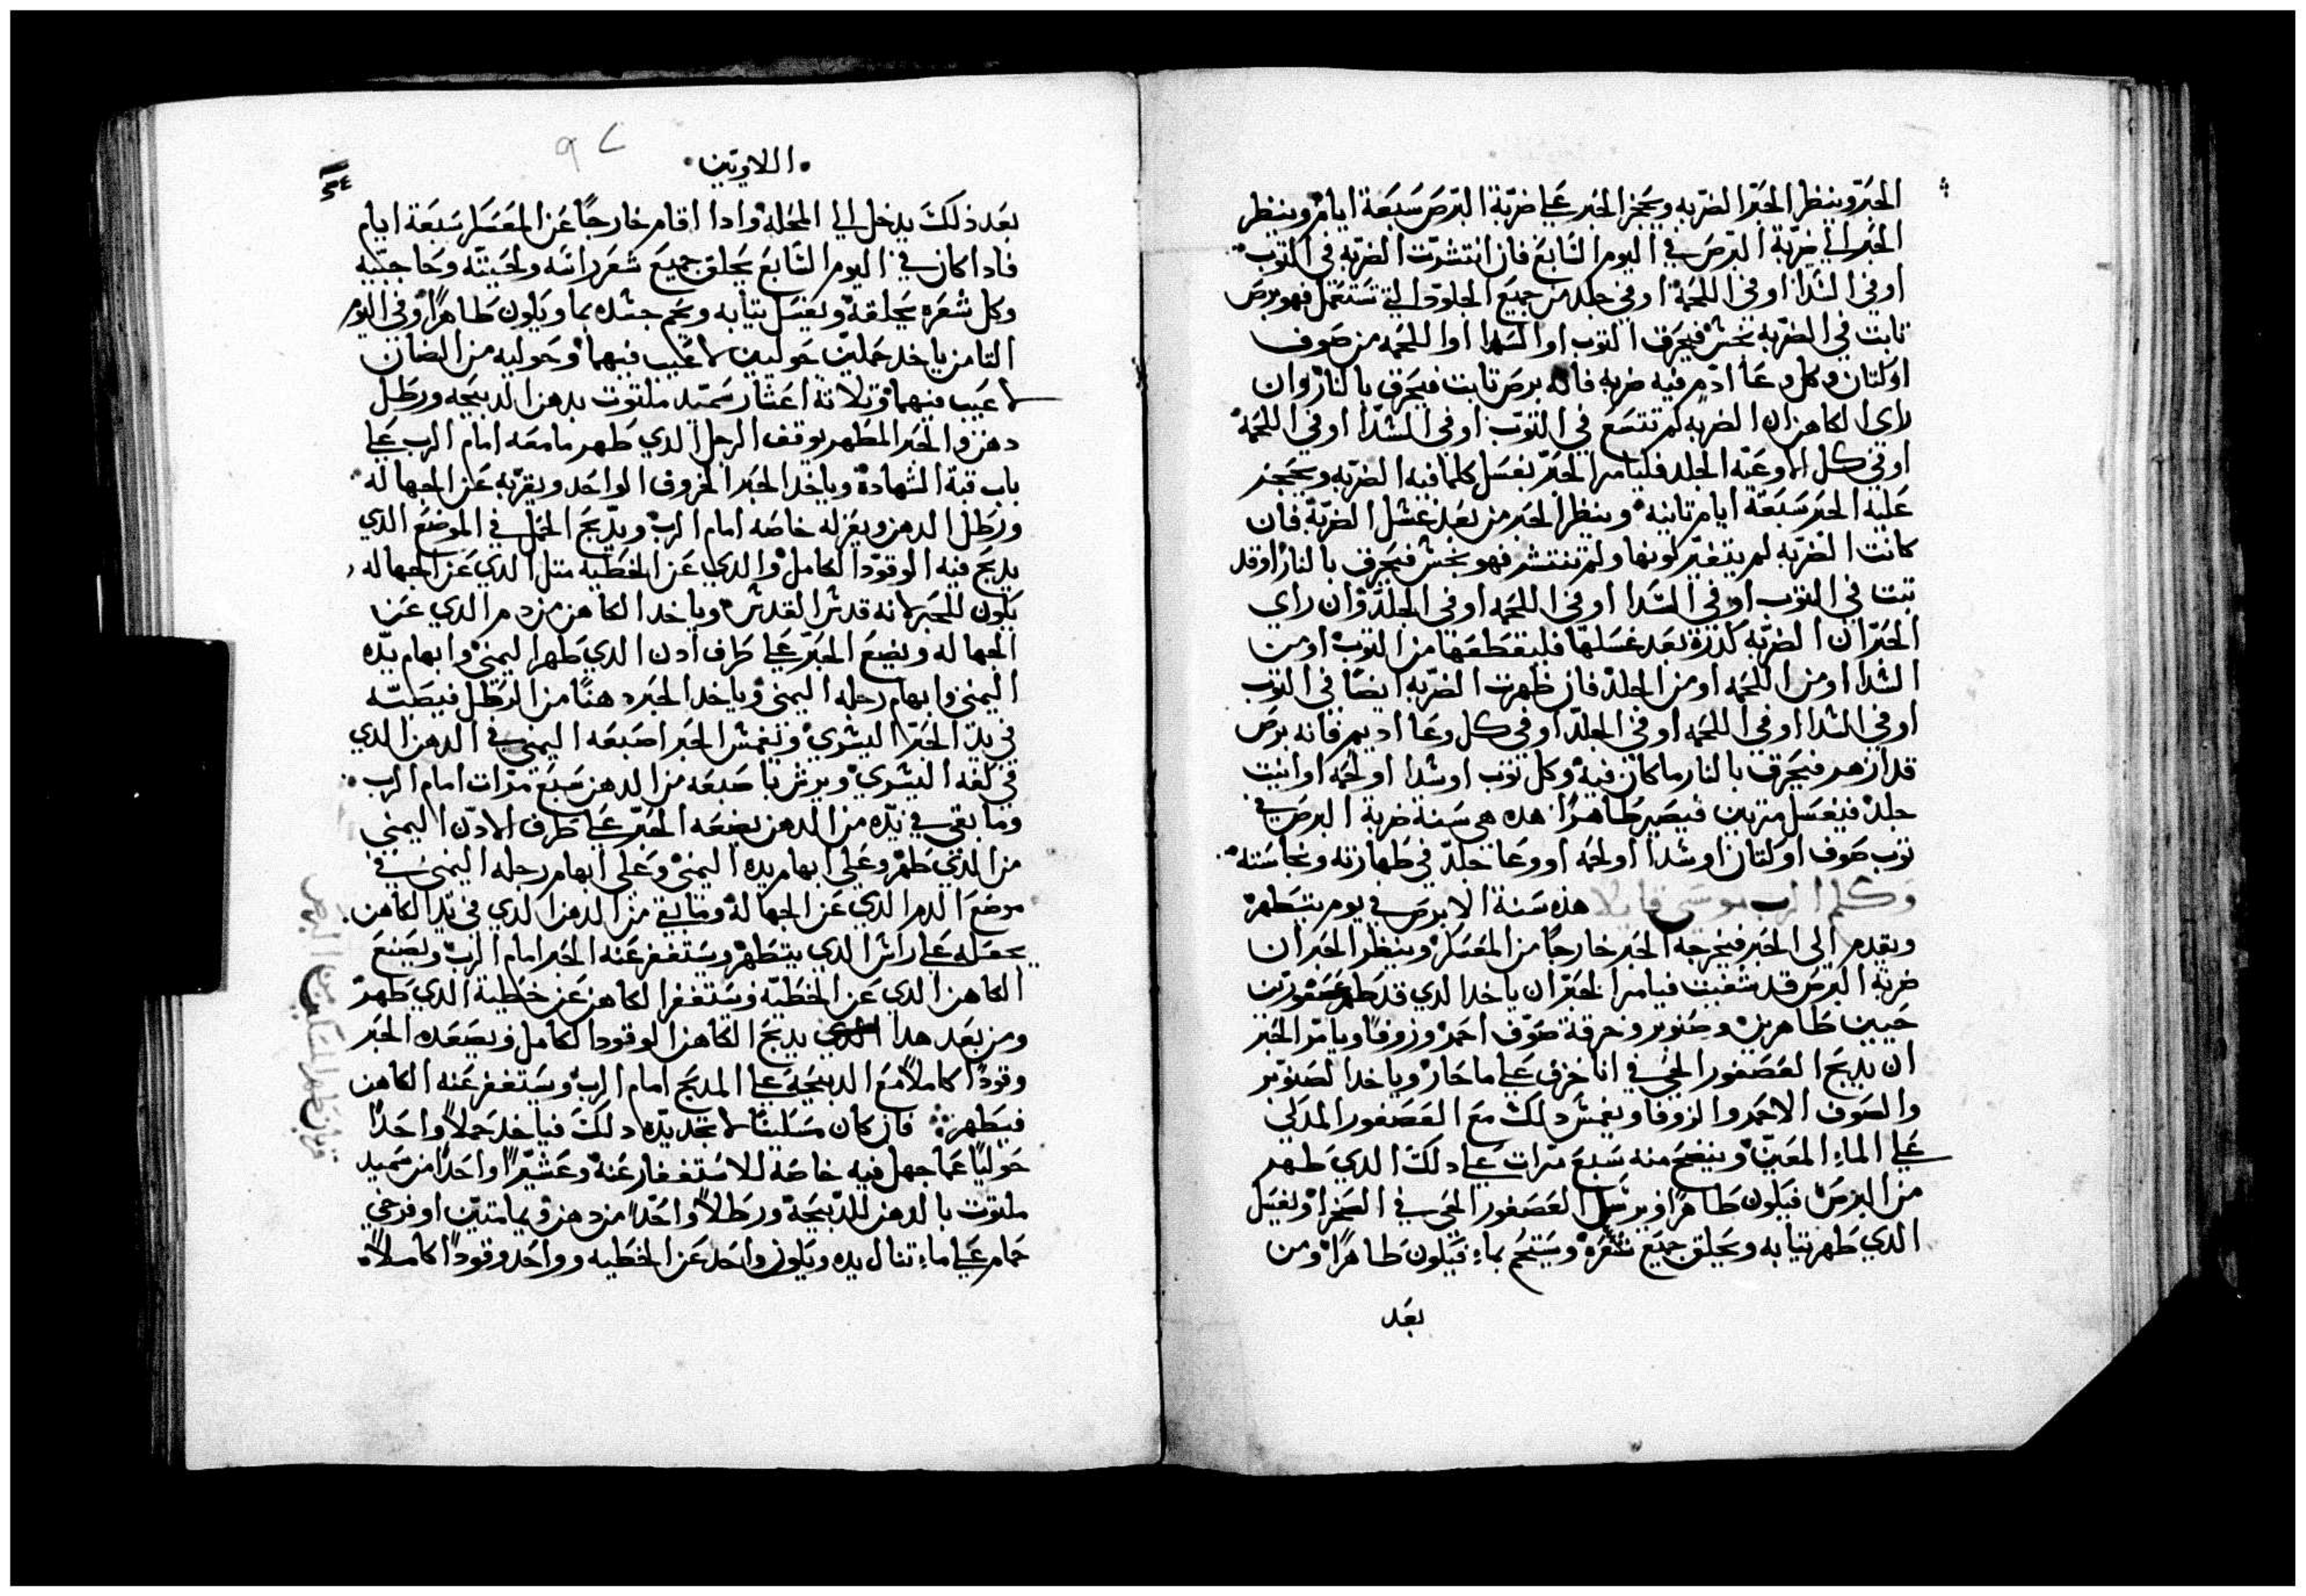 الحبر وينظر الحبر الضربه ويحجز الحبر على ضربة البرص سبعة ايام وينظر
الحبر الى ضربة البرص في اليوم السابع فان انتشرت الضربه في التوب
او في السدا او في اللحمة او في جلد من جميع الجلود التي تستعمل فهو برص
تابت في الضربه نجس فيحرق التوب او السدا او اللحمه من صوف
او كتان وكل وعا ادم فيه ضربه فانه برص تابت فيحرق بالنار وان
راى الكاهن ان الضربه لم تتسع في التوب او في السدا او في اللحمة
او في كل الاوعيه الجلد فليامر الحبر بغسل كلما فيه الضربه ويحجز
عليه الحبر سبعة ايام تانيه وينظر الحبر من بعد غسل الضربة فان
كانت الضربه لم يتغير لونها ولم تنتشر فهو نجس فيحرق بالنار او قد
تبت في التوب او في السدا او في اللحمه او في الجلد وان راي
الحبر ان الضربه كدرة بعد غسلها فليقطعها من التوب او من
السدا او من اللحمه او من الجلد فان ظهرت الضربه ايضا في التوب
او في السدا او في اللحمه او في الجلد او في كل وعا اديم فانه برص
قد ازهر فيحرق بالنار ما كان فيه وكل توب او سدا او لحمه او انيت
جلد فيغسل مرتين فيصير طاهرا هده هي سنة ضربة البرص في
توب صوف او كتان او سدا او لحمه او وعا جلد في طهارته ونجاسته
وكلم الرب موسى قايلا هذه سنة الابرص في يوم يتطهر
ويقدم الى الحبر فيخرجه الحبر خارجا من المعسكر وينظر الحبر ان
ضربة البرص قد شفيت فيامر الحبر ان ياخد الدي قد طهر عصفورين
حيين طاهرين وصنوبر وخرقة صوف احمر وزوفا ويامر الحبر
ان يدبح العصفور الحي في انا خزف على ما جار وياخد الصنوبر
والصوف الاحمر والزوفا ويغمس دلك مع العصفور المدكى
على الماء المعين وينضح منه سبع مرات على دلك الدي طهر
من البرص فيكون طاهرا ويرسل العصفور الحي في الصحرا ويغسل
الدي طهر تيابه ويحلق جميع شعره ويستحم بماء فيكون طاهرا ومن
بعد
اللاويين
بعد ذلك يدخل الى المحله وادا اقام خارجا عن المعسكر سبعة ايام
فادا كان في اليوم السابع يحلق جميع شعر راسه ولحيته وحاجبيه
وكل شعره يحلقه ويغسل تيابه ويحم جسده بما ويكون طاهرا وفي اليوم
التامن ياخد حملين حوليين لا عيب فيهما وحوليه من الضان
لا عيب فيهما وتلاتة اعشار سميد ملتوت بدهن الدبيحه ورطل
دهن والحبر المطهر يوقف الرجل الدي طهر ما معه امام الرب على
باب قبة الشهادة وياخد الحبر الخروف الواحد ويقربه عن الجهاله
ورطل الدهن ويعزله خاصه امام الرب ويدبح الحمل في الموضع الدي
يدبح فيه الوقود الكامل والدي عن الخطيه متل الدي عن الجهاله
يكون للحبر لانه قدس القدس وياخد الكاهن من دم الدي عن
الجهاله ويضع الحبر على طرف ادن الدي طهر اليمنى وابهام يده
اليمنى وابهام رجله اليمنى وياخد الحبر دهنا من الرطل فيصبه
في يد الحبر اليسرى ويغمس الحبر اصبعه اليمنى في الدهن الدي
في كفه اليسرى ويرش باصبعه من الدهن سبع مرات امام الرب
وما بقي في يده من الدهن يضعه الحبر على طرف الادن اليمنى
من الدي طهر وعلى ابهام يده اليمنى وعلى ابهام رجله اليمنى في
موضع الدم الدي عن الجهالة وما بقي من الدهن الدي في يد الكاهن
يجعله على راس الدي يتطهر ويستغفر عنه الحبر امام الرب ويصنع
الكاهن الدي عن الخطيه ويستغفر الكاهن عن خطية الدي طهر
ومن بعد هدا يدبح الكاهن الوقود الكامل ويصعده الحبر
وقودا كاملا مع الدبيحة على المدبح امام الرب ويستغفر عنه الكاهن
فيطهر فان كان مسكينا لا تجد يده دلك فياخد حملا واحدا
حوليا عما جهل فيه خاصه للاستغفار عنه وعشيرا واحدا من سميد
ملتوت بالدهن للدبيحة ورطلا واحدا من دهن ويمامتين او فرخي
حمام على ما تنال يده ويكون واحد عن الخطيه وواحد وقودا كاملا